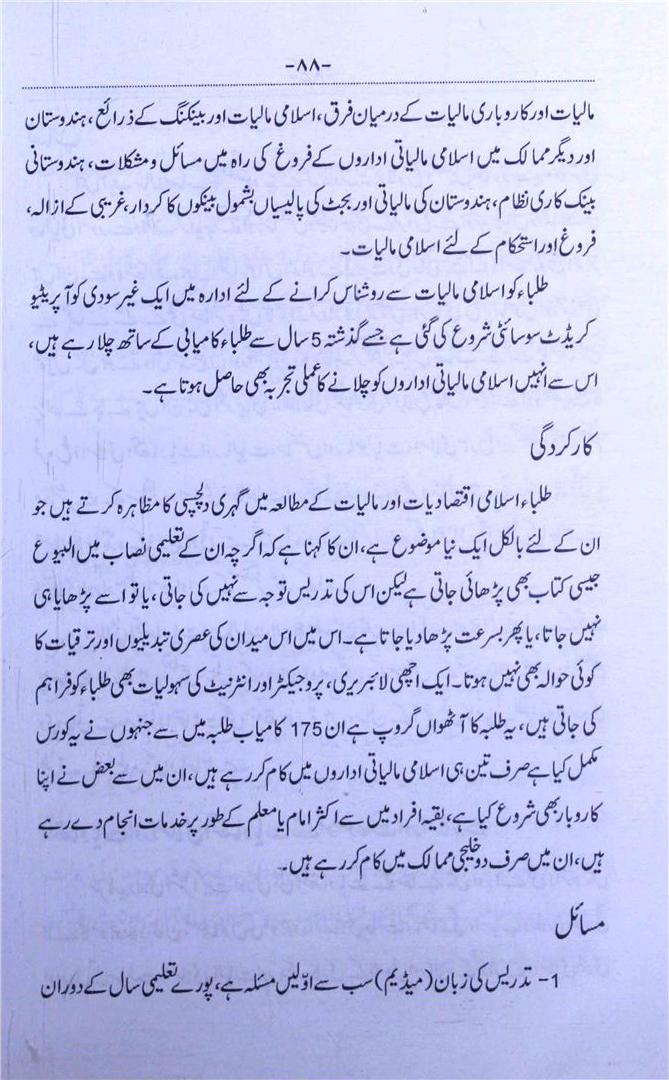 -۸۸-
مالیات اور کاروباری مالیات کے درمیان فرق، اسلامی مالیات اور بینکنگ کے ذرائع، ہندوستان
اور دیگر ممالک میں اسلامی مالیاتی اداروں کے فروغ کی راہ میں مسائل و مشکلات، ہندوستانی
بینک کاری نظام، ہندوستان کی مالیاتی اور بجٹ کی پالیسیاں بشمول بینکوں کا کردار، غریبی کے ازالہ،
فروغ اور استحکام کے لئے اسلامی مالیات۔
طلباء کو اسلامی مالیات سے روشناس کرانے کے لئے ادارہ میں ایک غیر سودی کوآپریٹیو
کریڈٹ سوسائٹی شروع کی گئی ہے جسے گذشتہ 5 سال سے طلباء کامیابی کے ساتھ چلا رہے ہیں،
اس سے انہیں اسلامی مالیاتی اداروں کو چلانے کا عملی تجربہ بھی حاصل ہوتا ہے۔
کارکردگی
طلباء اسلامی اقتصادیات اور مالیات کے مطالعہ میں گہری دلچسپی کا مظاہرہ کرتے ہیں جو
ان کے لئے بالکل ایک نیا موضوع ہے، ان کا کہنا ہے کہ اگرچہ ان کے تعلیمی نصاب میں البیوع
جیسی کتاب بھی پڑھائی جاتی ہے لیکن اس کی تدریس توجہ سے نہیں کی جاتی، یا تو اسے پڑھایا ہی
نہیں جاتا، یا پھر بسرعت پڑھا دیا جاتا ہے۔ اس میں اس میدان کی عصری تبدیلیوں اور ترقیات کا
کوئی حوالہ بھی نہیں ہوتا۔ ایک اچھی لائبریری، پروجیکٹر اور انٹرنیٹ کی سہولیات بھی طلباء کو فراہم
کی جاتی ہیں، یہ طلبہ کا آٹھواں گروپ ہے ان 175 کامیاب طلبہ میں سے جنہوں نے یہ کورس
مکمل کیا ہے صرف تین ہی اسلامی مالیاتی اداروں میں کام کر رہے ہیں، ان میں سے بعض نے اپنا
کاروبار بھی شروع کیا ہے، بقیہ افراد میں سے اکثر امام یا معلم کے طور پر خدمات انجام دے رہے
ہیں، ان میں صرف دو خلیجی ممالک میں کام کر رہے ہیں۔
مسائل
1- تدریس کی زبان (میڈیم) سب سے اوّلیں مسئلہ ہے، پورے تعلیمی سال کے دوران